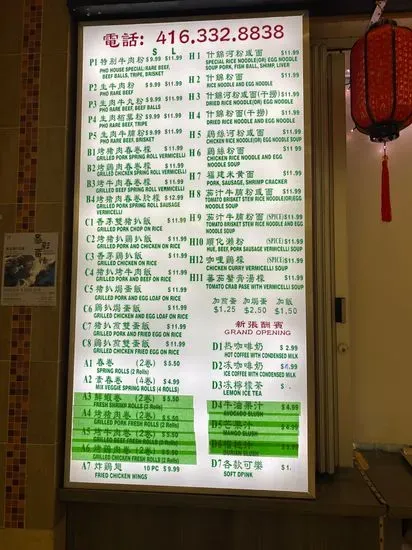 電話: 416.332.8838
S L
P1 特別牛肉粉 $9.99 $11.99
PHO HOUSE SPECIAL:RARE BEEF,
BEEF BALLS, TRIPE, BRISKET
P2 生牛肉粉 $9.99 $11.99
PHO RARE BEEF
P3 生肉牛丸粉 $9.99 $11.99
PHO RARE BEEF, BEEF BALLS
P4 生肉栢葉粉 $9.99 $11.99
PHO RARE BEEF, TRIPE
P5 生肉牛腩粉 $9.99 $11.99
PHO RARE BEEF, BRISKET
B1 烤豬肉春卷檬 $11.99
GRILLED PORK SPRING ROLL VERMICELLI
B2 烤鷄肉春卷檬 $11.99
GRILLED CHICKEN SPRING ROLL VERMICELLI
B3 烤牛肉春卷檬 $11.99
GRILLED BEEF SPRING ROLL VERMICELLI
B4 烤豬肉春卷 $12.99
GRILLED PORK SPRING ROLL SAUSAGE
VERMICELLI
C1 香茅雙豬扒飯 $11.99
GRILLED PORK CHOP ON RICE
C2 烤豬扒鷄扒飯 $11.99
GRILLED PORK AND CHICKEN ON RICE
C3 香茅鷄扒飯 $11.99
GRILLED CHICKEN ON RICE
C4 豬扒烤牛肉飯 $11.99
GRILLED PORK AND BEEF ON RICE
C5 豬扒焗蛋飯 $11.99
GRILLED PORK AND EGG LOAF ON RICE
C6 鷄扒焗蛋飯 $11.99
GRILLED CHICKEN AND EGG LOAF ON RICE
C7 豬扒煎雙蛋飯 $11.99
GRILLED PORK AND FRIED EGG ON RICE
C8 鷄扒煎雙蛋飯 $11.99
GRILLED CHICKEN FRIED EGG ON RICE
A1 春卷 (2卷) $5.50
SPRING ROLLS (2 Rolls)
A2 素春卷 (4卷) $4.99
MIX VEGGIE SPRING ROLLS (4 ROLLS)
A3 鮮蝦卷 (2卷) $5.50
FRESH SHRIMP ROLLS (2 Rolls)
A4 烤豬肉卷 (2卷) $5.50
GRILLED PORK FRESH ROLLS (2 Rolls)
A5 烤牛肉卷 (2卷) $5.50
GRILLED BEEF FRESH ROLLS (2 Rolls)
A6 烤鷄肉卷 (2卷) $5.50
GRILLED CHICKEN FRESH ROLLS (2 Rolls)
A7 炸鷄翅 10 PC $9.99
FRIED CHICKEN WINGS
H1 什錦河粉或面 $11.99
SPECIAL RICE NOODLE(OR) EGG NOODLE
SOUP PORK, FISH BALL, SHIMP, LIVER
H2 什錦粉面 $11.99
RICE NOODLE AND EGG NOODLE
H3 什錦河粉或面(干撈) $11.99
DRIED RICE NOODLE(OR) EGG NOODLE
H4 什錦粉面(干撈) $11.99
DRIED RICE NOODLE AND EGG NOODLE
H5 鷄絲河粉或面 $11.99
CHICKEN RICE NOODLE(OR) EGG NOODLE SOUP
H6 鷄絲粉面 $11.99
CHICKEN RICE NOODLE AND EGG
NOODLE SOUP
H7 福建米黄面 $11.99
PORK, SAUSAGE, SHRIMP CRACKER
H8 茄汁牛腩粉或面 $11.99
TOMATO BRISKET STEW RICE NOODLE(OR)EGG
NOODLE SOUP
H9 茄汁牛腩粉面 (SPICE) $11.99
TOMATO BRISKET STEW RICE NOODLE AND EGG
NOODLE SOUP
H10 順化瀨粉 (SPICE) $11.99
HUE, BEEF, PORK SAUSAGE VERMICELLI SOUP
H12 咖哩鷄檬 (SPICE) $11.99
CHICKEN CURRY VERMICELLI SOUP
H11 蕃茄蟹膏湯檬 $11.99
TOMATO CRAB PASTE WITH VERMICELLI SOUP
加煎蛋 加焗蛋 加飯
$1.25 $2.50 $1.50
新張酬賓
GRAND OPENING
D1 热咖啡奶 $2.99
HOT COFFEE WITH CONDENSED MILK
D2 冰咖啡奶 $4.99
ICE COFFEE WITH CONDENSED MILK
D3 冰檸檬茶 $
LEMON ICE TEA
D4 牛油果汁 $4.99
AVOCADO SLUSH
D5 芒果汁 $4.99
MANGO SLUSH
D6 榴槤汁 $4.99
DURIAN SLUSH
D7 各款可樂 $1.
SOFT DPINK